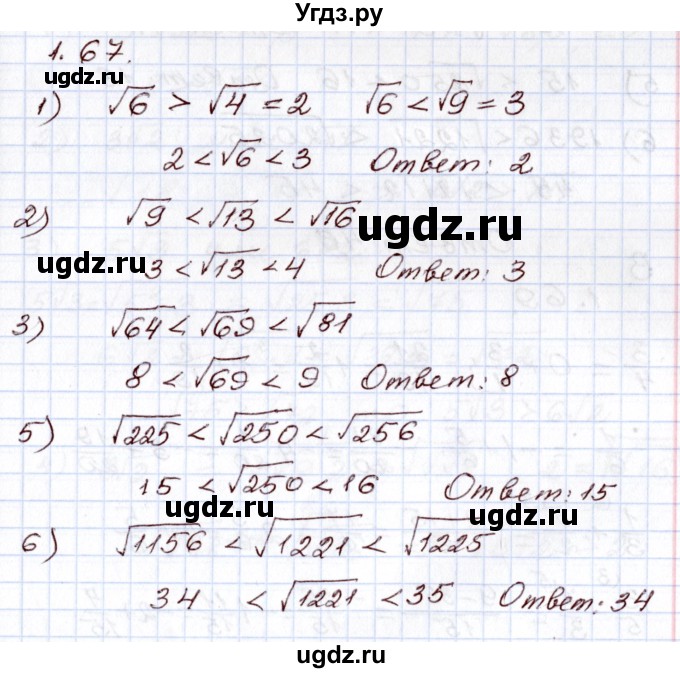 Угдз.ру
1.67.
угdz.ru
1) √6 > √4 = 2 √6 < √9 = 3
2 < √6 < 3 Ответ: 2
2) √9 < √13 < √16
ugdz.ru
ugdz.ru
3 < √13 < 4 Ответ: 3
3) √64 < √69 < √81
8 < √69 < 9 Ответ: 8
5) √225 < √250 < √256
15 < √250 < 16 Ответ: 15
ugdz.ru
ugdz.ru
6) √1156 < √1221 < √1225
34 < √1221 < 35 Ответ: 34
ugdz.ru